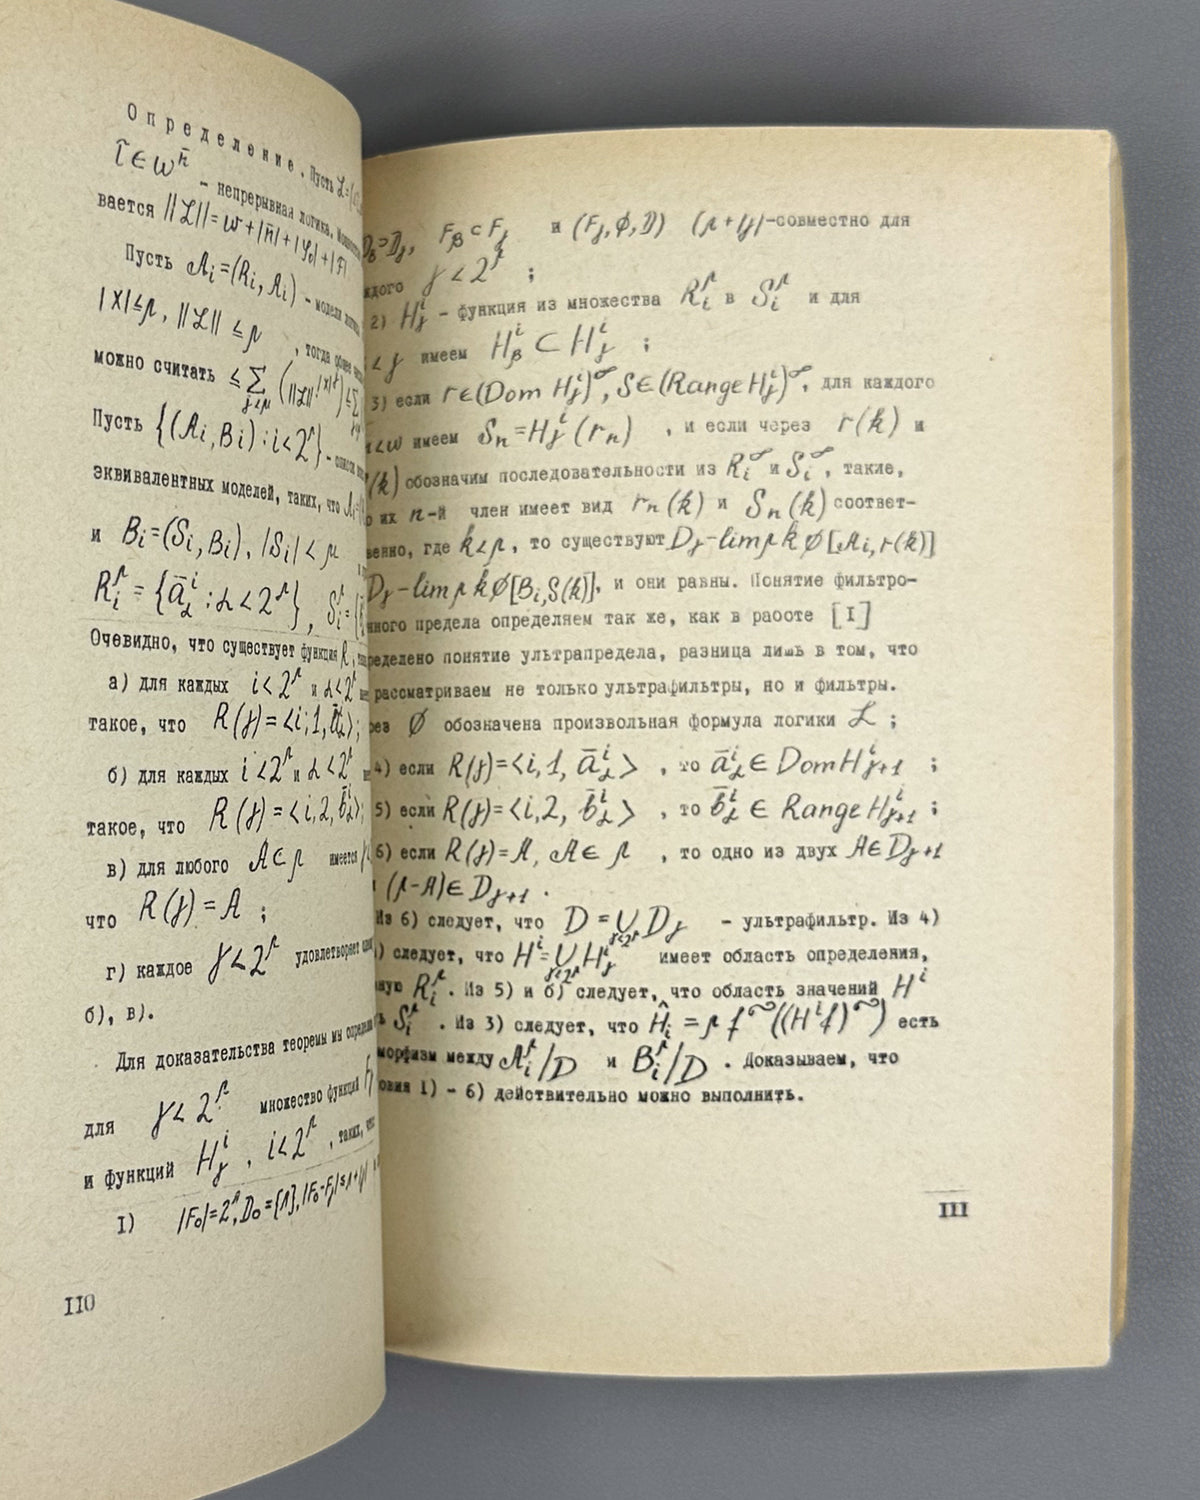 Определение. Пусть ℒ=
τ̂ ∈ ω^n̄ – непрерывная логика.
вается ||ℒ|| = ω+|n̄|+|𝒴₀|+|ℱ|
Пусть 𝒜ᵢ=(Rᵢ, Aᵢ) – модели
|X|≤μ, ||ℒ|| ≤ μ , тогда
можно считать ≤ Σ
Пусть {(Aᵢ, Bᵢ) : i<2^μ} –
эквивалентных моделей, таких, что
и Bᵢ=(Sᵢ, Bᵢ), |Sᵢ| < μ
Rᵢ^μ = {ā_α^i : α < 2^μ},
Очевидно, что существует функция R,
а) для каждых i < 2^μ и α<2^μ
такое, что R(γ) = <i, 1, ā_α^i>;
б) для каждых i<2^μ и α<2^μ
такое, что R(γ) = <i, 2, b̄_α^i>;
в) для любого A⊂μ имеется
что R(γ) = A ;
г) каждое γ<2^μ удовлетворяет
б), в).
Для доказательства теоремы мы
для γ< 2^μ множество функций F
и функций H_γ^i , i<2^μ , таких,
I) |F₀|=2^μ, D₀={μ},
110
F_β ⊂ F_γ и (F_γ, ∅, D) (μ+|γ|-совместно для
γ < 2^μ ;
2) H_γ^i – функция из множества R_i^μ в S_i^μ и для
< γ имеем H_β^i ⊂ H_γ^i ;
3) если r∈(Dom H_γ^i)^∞, S∈(Range H_γ^i)^∞, для каждого
<ω имеем S_n = H_γ^i (r_n) , и если через r(k) и
(k) обозначим последовательности из R_i^∞ и S_i^∞, такие,
их n-й член имеет вид r_n(k) и S_n(k) соответ-
венно, где k<μ, то существуют D_γ-lim μ k ∅[𝒜ᵢ, r(k)]
D_γ-lim μ k ∅[Bᵢ, S(k)], и они равны. Понятие фильтро-
нного предела определяем так же, как в работе [I]
ределено понятие ультрапредела, разница лишь в том, что
рассматриваем не только ультрафильтры, но и фильтры.
рез ∅ обозначена произвольная формула логики ℒ ;
4) если R(γ)=<i, 1, ā_α^i> , то ā_α^i ∈ Dom H_{γ+1}^i ;
5) если R(γ)=<i, 2, b̄_α^i> , то b̄_α^i ∈ Range H_{γ+1}^i ;
6) если R(γ)=A, A∈ μ , то одно из двух A∈D_{γ+1}
(μ-A)∈ D_{γ+1} .
Из 6) следует, что D = ∪_{γ<2^μ} D_γ – ультрафильтр. Из 4)
) следует, что H^i = ∪_{γ<2^μ} H_γ^i имеет область определения,
ную R_i^μ . Из 5) и б) следует, что область значений H^i
S_i^μ . Из 3) следует, что Ĥᵢ = μ f^∞((H^i f)^∞) есть
морфизм между 𝒜_i^μ/D и B_i^μ/D . Доказываем, что
овия 1) – 6) действительно можно выполнить.
111